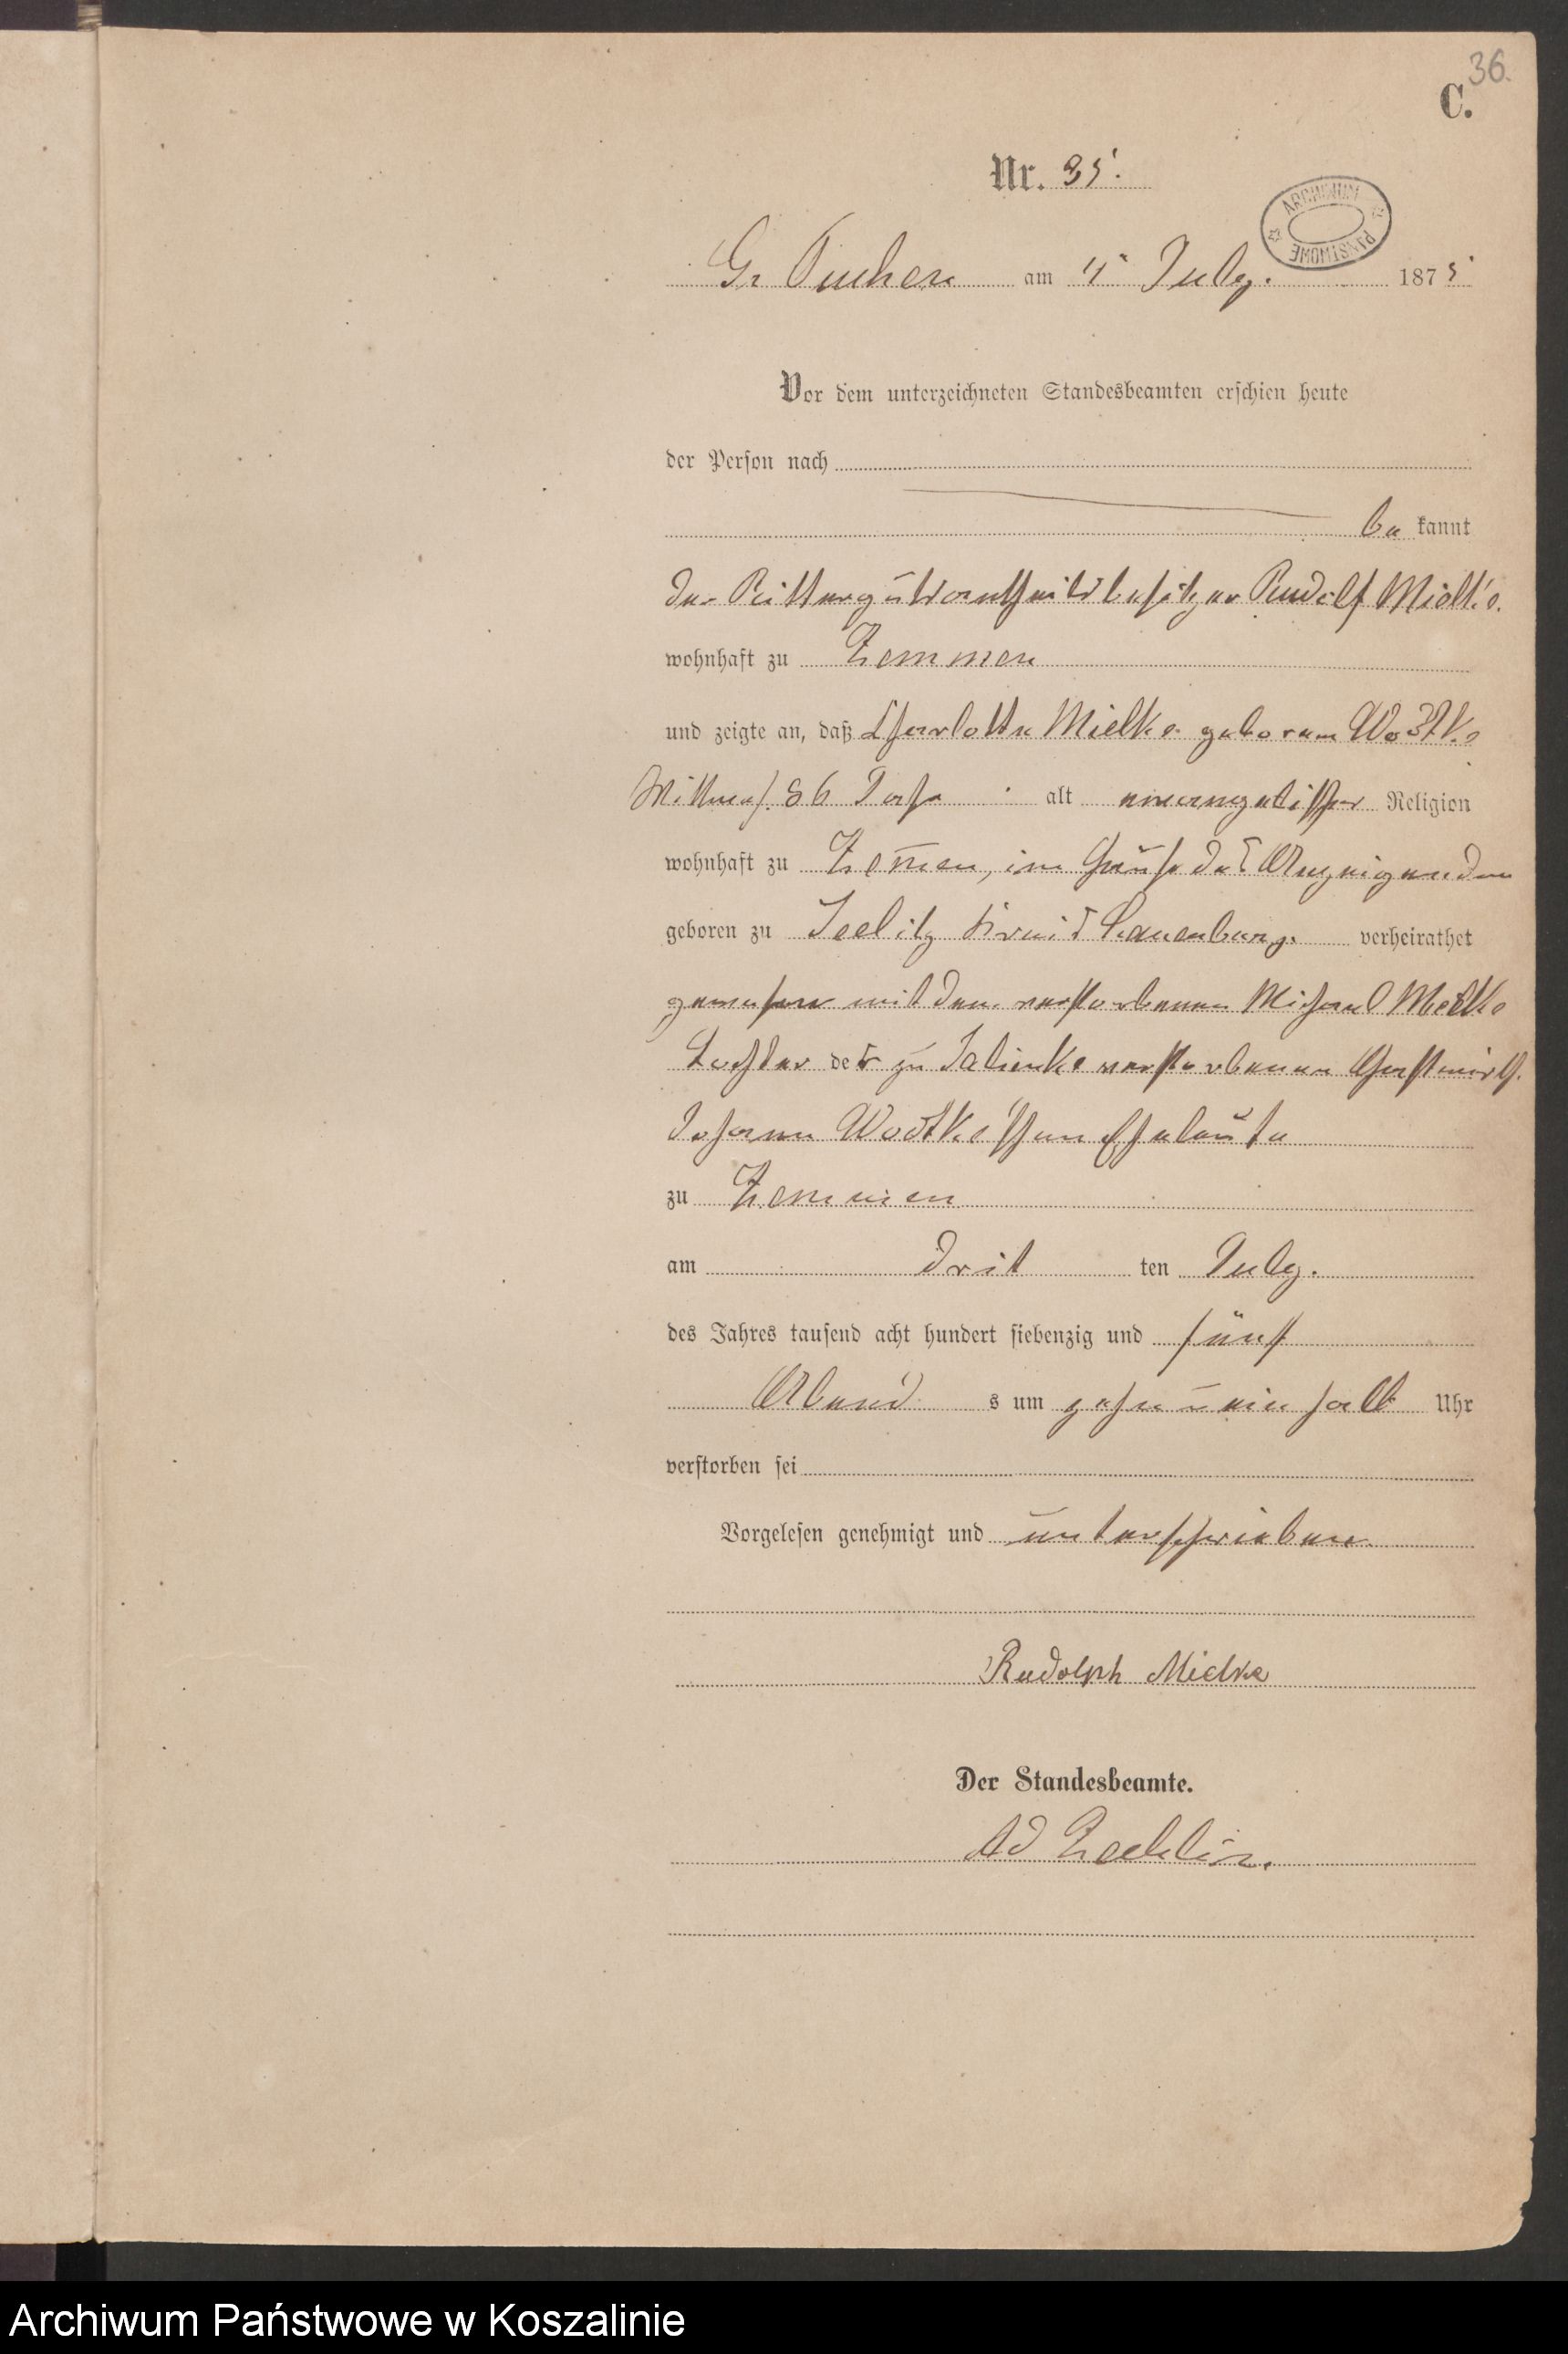 36.
C.
Nr. 35.
ARCHIWUM PAŃSTWOWE
Gr Tuchen am 4t July. 1875
Vor dem unterzeichneten Standesbeamten erschien heute
der Person nach
be kannt
der Rittergutsantheilsbesitzer Rudolf Mielke.
wohnhaft zu Zemmen
und zeigte an, daß Charlotte Mielke geboren Wodtke
86 Jahr alt evangelischer Religion
wohnhaft zu Zem̄en, im Hause des Anzeigenden
geboren zu Kreis Lauenburg. verheirathet
gewesen mit dem verstorbenen Michael Mielke
Tochter der zu verstorbenen Gastwirth
Johann Wodtke'schen Eheleute
zu Zemmen
am drit ten July.
des Jahres tausend acht hundert siebenzig und fünf
Abend s um zehn u ein halb Uhr
verstorben sei
Vorgelesen genehmigt und unterschrieben
Rudolph Mielke
Der Standesbeamte.
Ad
Archiwum Państwowe w Koszalinie